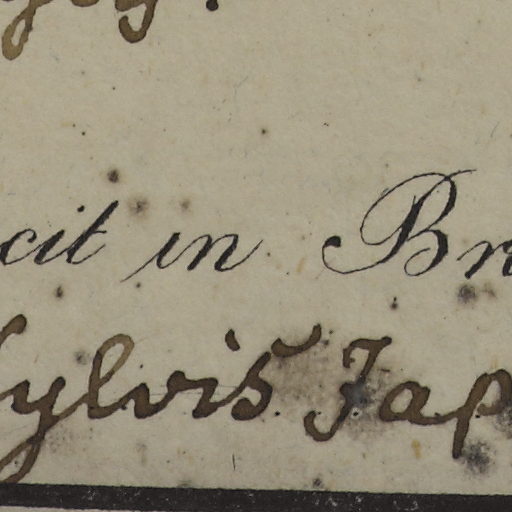 cit in Br
Sylvis Jap